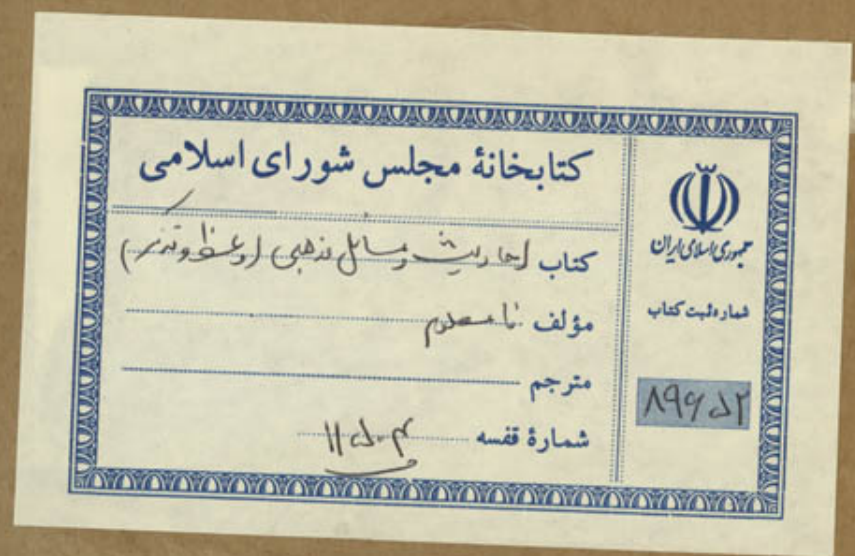 کتابخانهٔ مجلس شورای اسلامی
کتاب احادیث و مسائل مذهبی (وعظ و تذکر)
مؤلف نامعلوم
مترجم
شمارهٔ قفسه
جمهوری اسلامی ایران
شماره ثبت کتاب